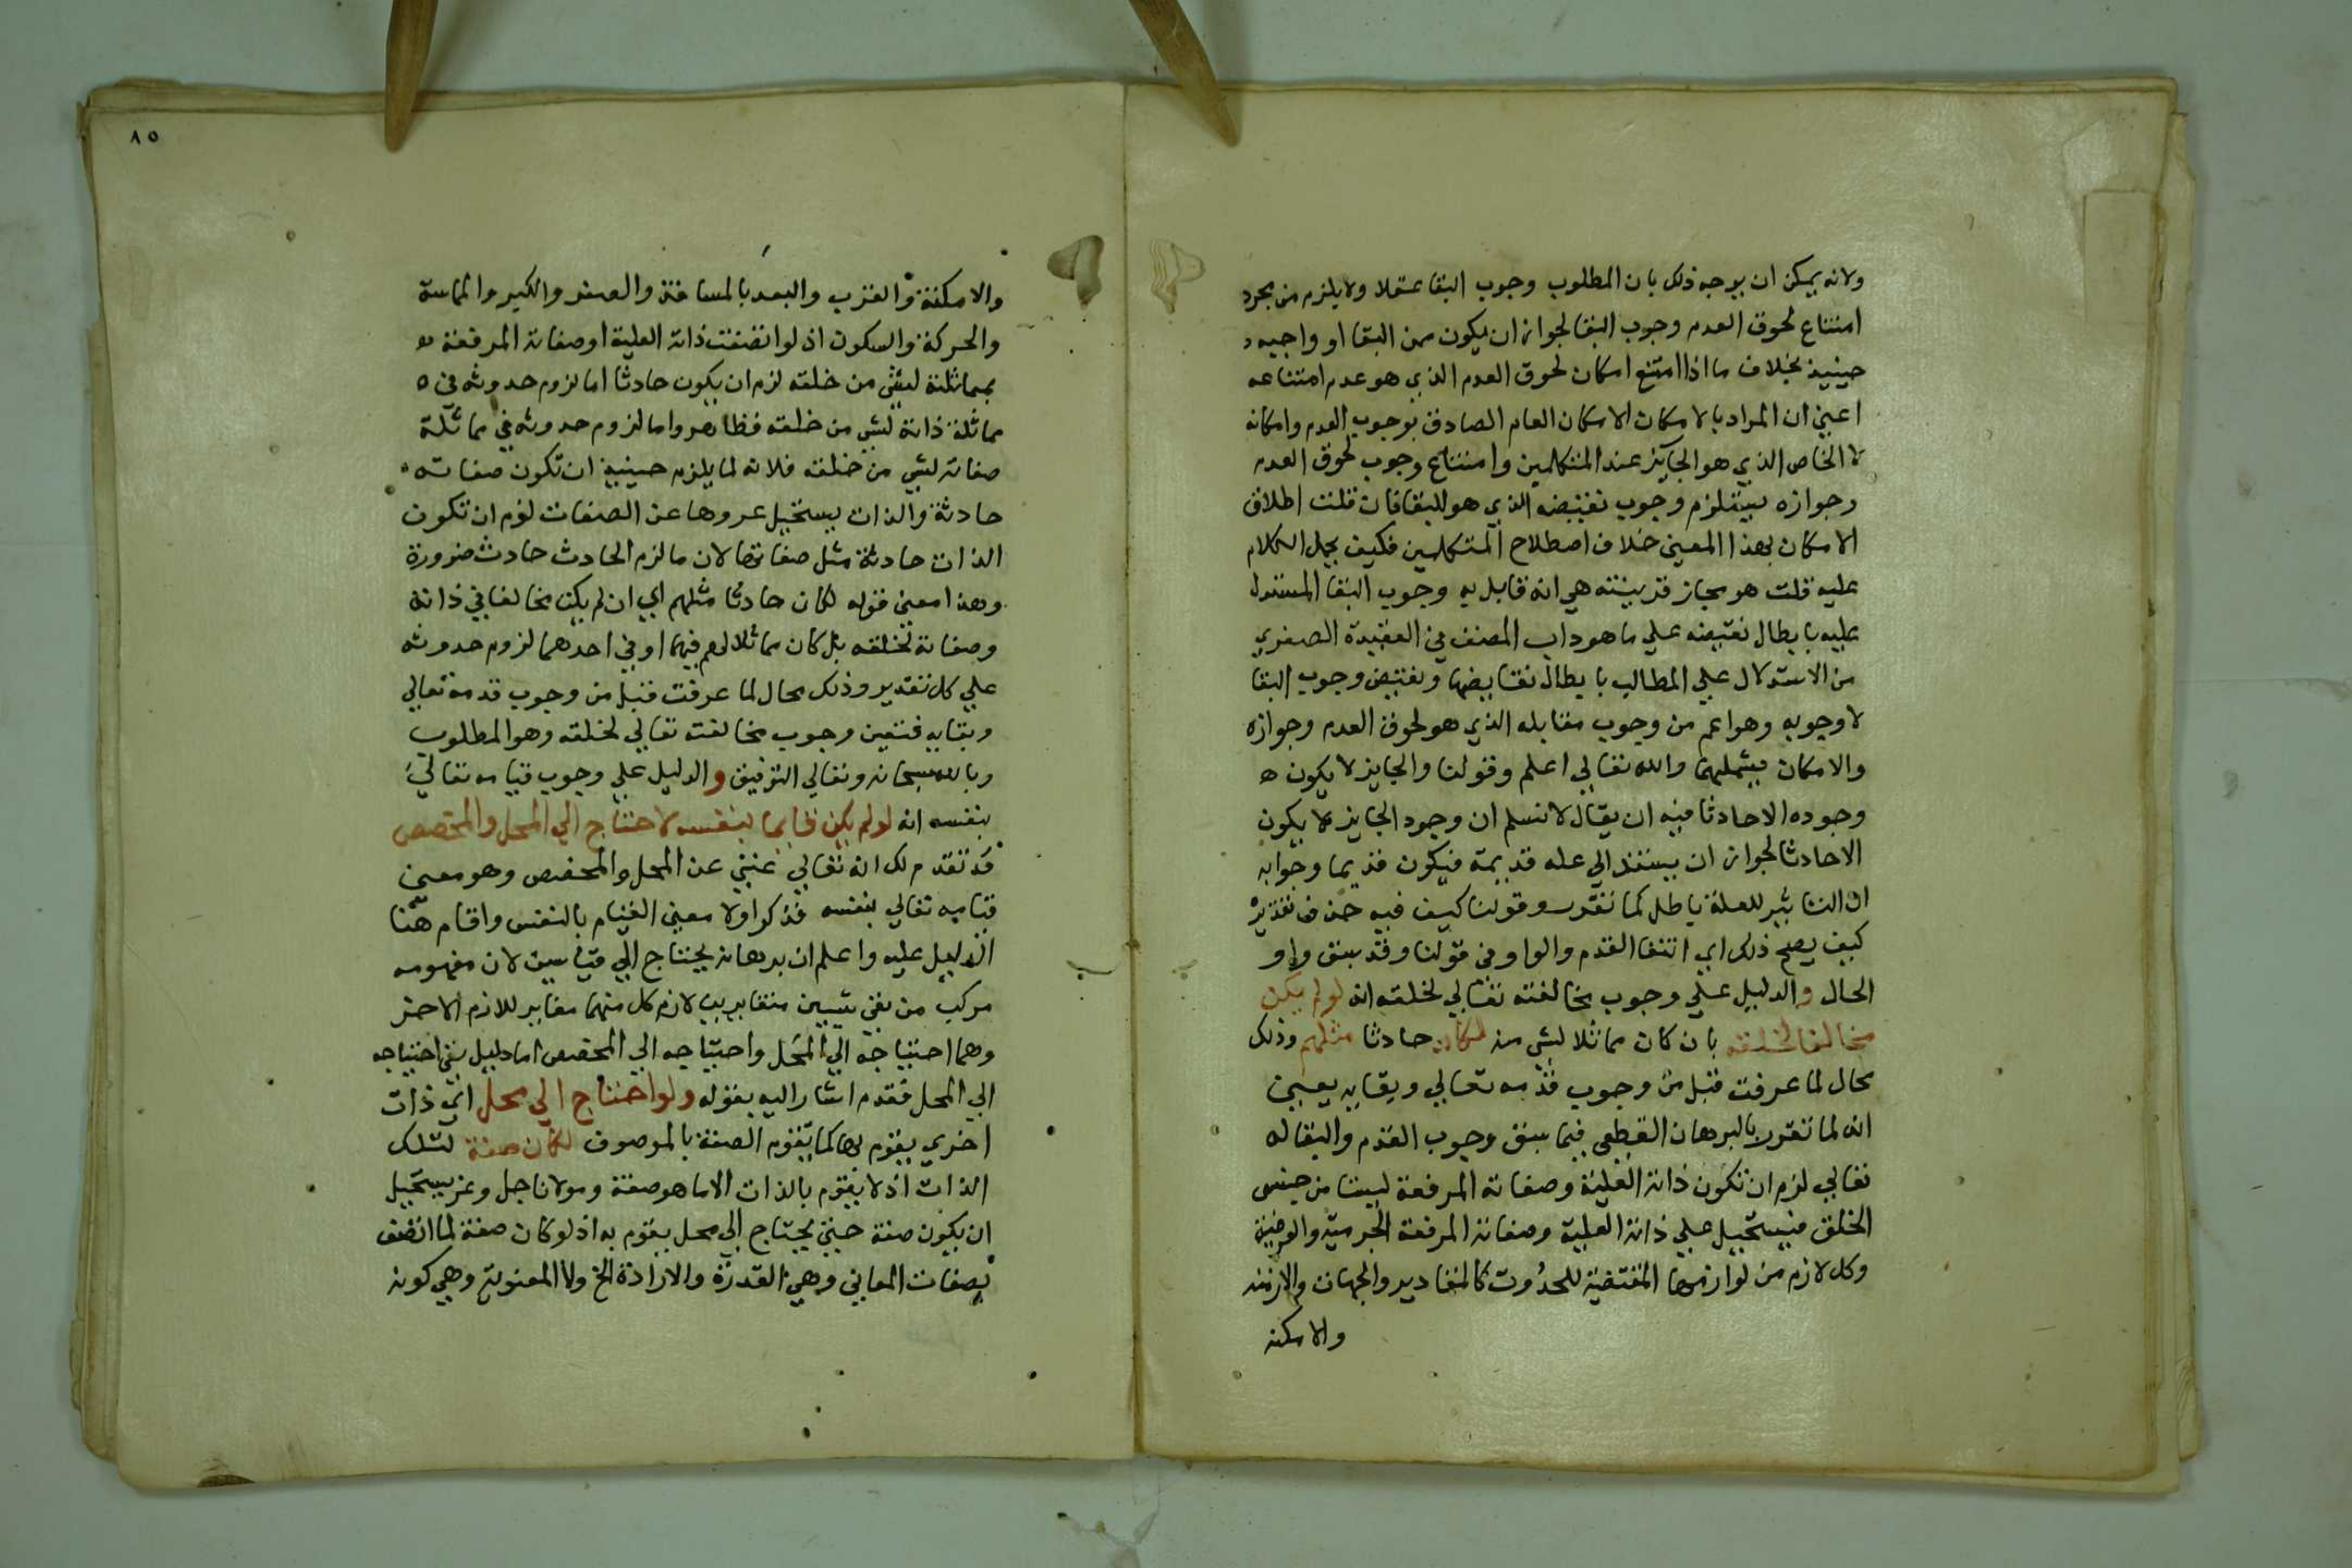 ولانه يمكن ان يوجه ذلك بان المطلوب وجوب البقا عقلا ولا يلزم من مجرد
امتناع لحوق العدم وجوب البقا لجواز ان يكون ممن البقا او واجبه
حينيذ بخلاف ما اذا امتنع امكان لحوق العدم الذي هو عدم امتناعه
اعني ان المراد بالامكان الامكان العام الصادق بوجوب العدم وامكانه
لا الخاص الذي هو الجايز عند المتكلمين وامتناع وجوب لحوق العدم
وجوازه يستلزم وجوب نقيضه الذي هو البقا فان قلت اطلاق
الامكان بهذا المعني خلاف اصطلاح المتكلمين فكيف يحمل الكلام
عليه قلت هو مجاز قرينته هي انه قابل به وجوب البقا المستدل
عليه بابطال نقيضه علي ما هو داب المصنف في العقيدة الصغري
من الاستدلال علي المطالب بابطال نقايضها ونقيض وجوب البقا
لا وجوبه وهو اعم من وجوب مقابله الذي هو لحوق العدم وجوازه
والامكان يشملهما والله تعالي اعلم وقولنا والجايز لا يكون
وجوده الا حادثا فيه ان يقال لا نسلم ان وجود الجايز لا يكون
الا حادثا لجواز ان يستند الي علة قديمة فيكون قديما وجوابه
ان التاثير للعلة باطل كما تقرر وقولنا كيف فيه حذف تقديره
كيف يصح ذلك اي انتفا القدم والواو في قولنا وقد سبق واو
الحال والدليل علي وجوب مخالفته تعالي لخلقه انه لو لم يكن
مخالفا لخلقه بان كان مماثلا لشي منه لكان حادثا مثلهم وذلك
محال لما عرفت قبل من وجوب قدمه تعالي وبقايه يعني
انه لما تقرر بالبرهان القطعي فيما سبق وجوب القدم والبقا له
تعالي لزم ان تكون ذاته العلية وصفاته المرفعة ليستا من جنس
الخلق فيستحيل علي ذاته العلية وصفاته المرفعة الجرمية والعرضية
وكل لازم من لوازمهما المقتضية للحدوث كالمقادير والجهات والازمنه
والامكنه
٨٥
والامكنة والقرب والبعد بالمسافة والصغر والكبر والمماسة
والحركة والسكون اذ لو اتصفت ذاته العلية او صفاته المرفعة
بمماثلة لشي من خلقه لزم ان يكون حادثا اما لزوم حدوثه في
مماثلة ذاته لشي من خلقه فظاهر واما لزوم حدوثه في مماثلة
صفاته لشي من خلقه فلانه لما يلزم حينيذ ان تكون صفاته
حادثة والذات يستحيل عروها عن الصفات لزم ان تكون
الذات حادثة مثل صفاتها لان ما لزم الحادث حادث ضرورة
وهذا معني قوله لكان حادثا مثلهم اي ان لم يكن مخالفا في ذاته
وصفاته لخلقه بل كان مماثلا لهم فيهما او في احدهما لزوم حدوثه
علي كل تقدير وذلك محال لما عرفت قبل من وجوب قدمه تعالي
وبقايه فتعين وجوب مخالفته تعالي لخلقه وهو المطلوب
وبالله سبحانه وتعالي التوفيق والدليل علي وجوب قيامه تعالي
بنفسه انه لو لم يكن قايما بنفسه لاحتاج الي المحل والمخصص
قد تقدم لك انه تعالي غني عن المحل والمخصص وهو معني
قيامه تعالي بنفسه فذكر اولا معني القيام بالنفس واقام هنا
الدليل عليه واعلم ان برهانه يحتاج الي قياسين لان مفهومه
مركب من نفي شيين متغايرين لازم كل منهما مغاير للازم الاخر
وهما احتياجه الي المحل واحتياجه الي المخصص اما دليل نفي احتياجه
الي المحل فقد اشار اليه بقوله ولو احتاج الي محل اي ذات
اخري يقوم بها كما تقوم الصفة بالموصوف لكان صفة لتلك
الذات اذ لا يقوم بالذات الا ما هو صفة ومولانا جل وعز يستحيل
ان يكون صفة حتي يحتاج الي محل يقوم به اذ لو كان صفة لما اتصف
بصفات المعاني وهي القدرة والارادة الخ ولا المعنوية وهي كونه